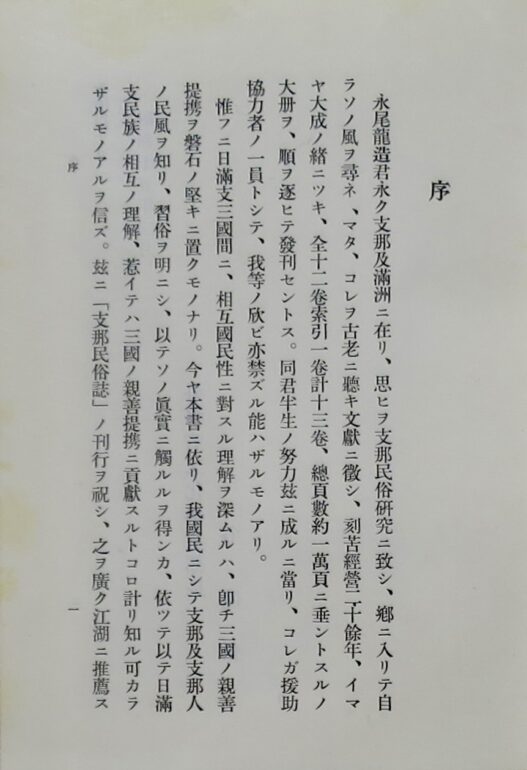 序
永尾龍造君永ク支那及滿洲ニ在リ、思ヒヲ支那民俗硏究ニ致シ、鄕ニ入リテ自
ラソノ風ヲ尋ネ、マタ、コレヲ古老ニ聽キ文獻ニ徵シ、刻苦經營二十餘年、イマ
ヤ大成ノ緖ニツキ、全十二卷索引一卷計十三卷、總頁數約一萬頁ニ垂ントスルノ
大册ヲ、順ヲ逐ヒテ發刊セントス。同君半生ノ努力玆ニ成ルニ當リ、コレガ援助
協力者ノ一員トシテ、我等ノ欣ビ亦禁ズル能ハザルモノアリ。
惟フニ日滿支三國間ニ、相互國民性ニ對スル理解ヲ深ムルハ、卽チ三國ノ親善
提携ヲ磐石ノ堅キニ置クモノナリ。今ヤ本書ニ依リ、我國民ニシテ支那及支那人
ノ民風ヲ知リ、習俗ヲ明ニシ、以テソノ眞實ニ觸ルルヲ得ンカ、依ツテ以テ日滿
支民族ノ相互ノ理解、惹イテハ三國ノ親善提携ニ貢獻スルトコロ計リ知ル可カラ
ザルモノアルヲ信ズ。玆ニ「支那民俗誌」ノ刊行ヲ祝シ、之ヲ廣ク江湖ニ推薦ス
序
一